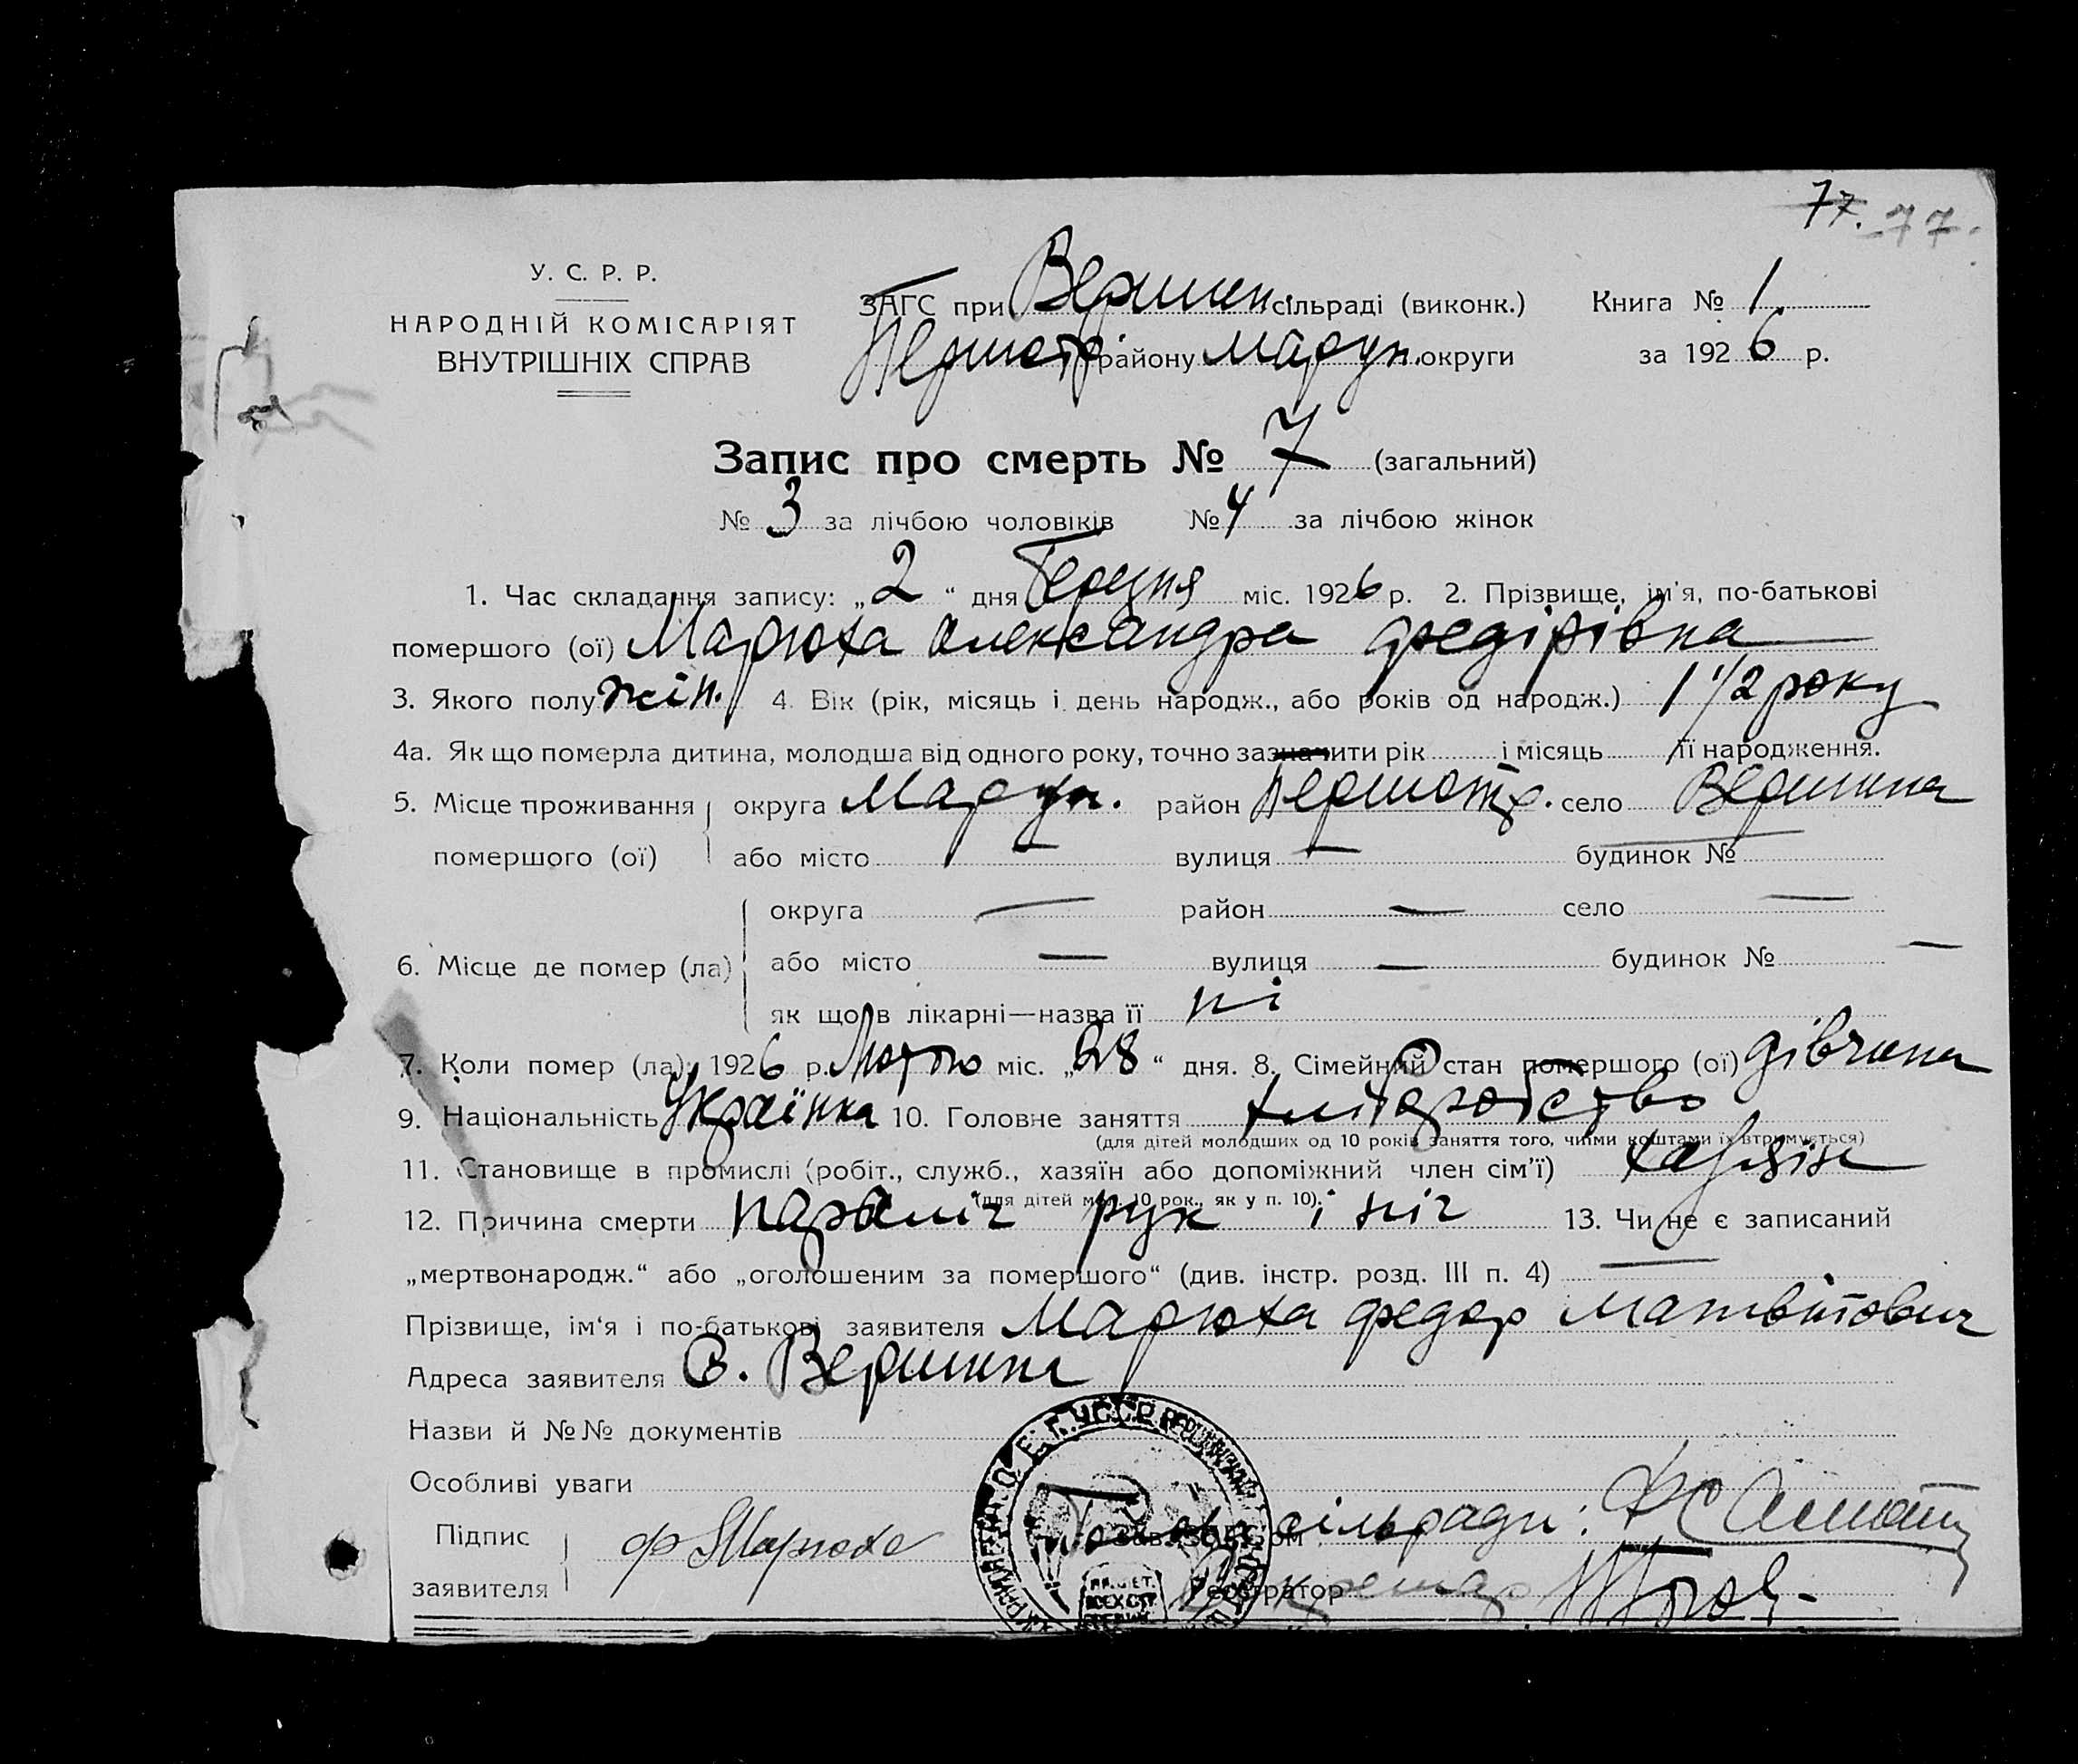 77. 77.
У. С. Р. Р.
НАРОДНІЙ КОМІСАРІЯТ
ВНУТРІШНІХ СПРАВ
ЗАГС при Вершин. сільраді (виконк.) Книга № 1
Першотр. району Маруп. округи за 1926 р.
Запис про смерть № 7 (загальний)
№ 3 за лічбою чоловіків № 4 за лічбою жінок
1. Час складання запису: „2“ дня Березня міс. 1926 р. 2. Прізвище, ім'я, по-батькові
помершого (ої) Марюха Александра Федірівна
3. Якого полу жін. 4. Вік (рік, місяць і день народж., або років од народж.) 1 1/2 року
4а. Як що померла дитина, молодша від одного року, точно зазначити рік і місяць її народження.
5. Місце проживання округа Маруп. район Першотр. село Вершина
помершого (ої) або місто — вулиця — будинок № —
округа — район — село —
6. Місце де помер (ла) або місто — вулиця — будинок № —
як що в лікарні—назва її ні
7. Коли помер (ла) 1926 р. Лютого міс. „28“ дня. 8. Сімейний стан помершого (ої) дівчина
9. Національність Українка 10. Головне заняття хліборобство
(для дітей молодших од 10 років заняття того, чиїми коштами їх втримується)
11. Становище в промислі (робіт., служб., хазяїн або допоміжний член сім'ї) хазяїн
(для дітей мол. 10 рок., як у п. 10).
12. Причина смерти параліч рук і ніг 13. Чи не є записаний
„мертвонародж.“ або „оголошеним за помершого“ (див. інстр. розд. III п. 4) —
Прізвище, ім'я і по-батькові заявителя Марюха Федор Матвійович
Адреса заявителя С. Вершина
Назви й №№ документів
Особливі уваги
Підпис ф Марюха Голова сільради:
заявителя Реєстратор Секретар